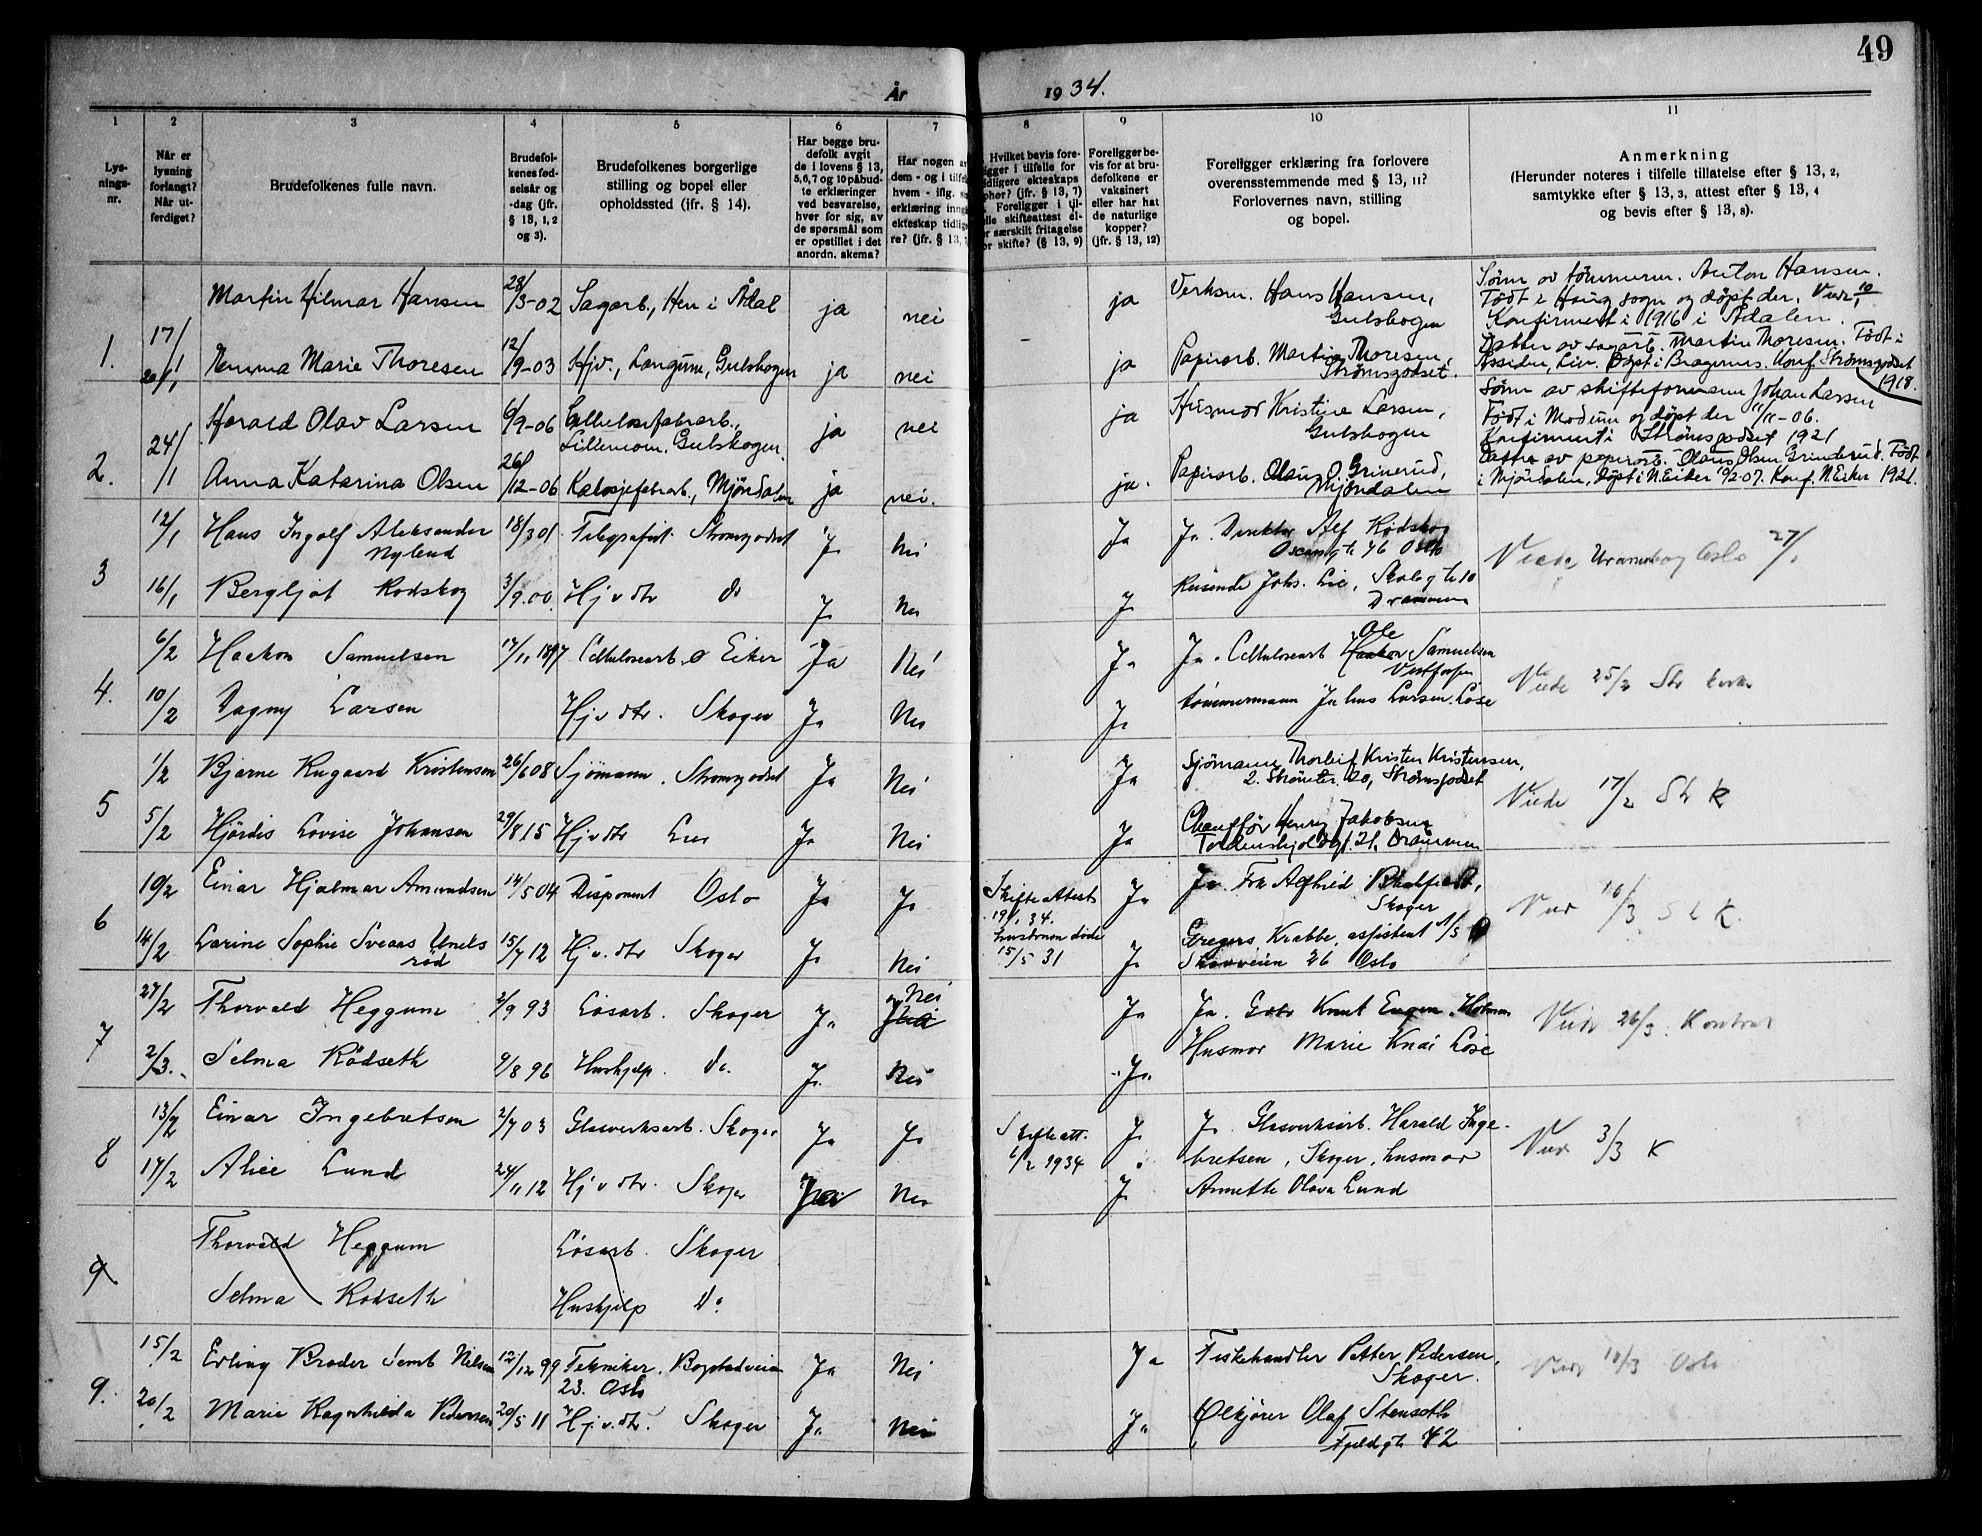 49
År 1934.
1 2 3 4 5 6 7 8 9 10 11
Lys-
nings-
nr.
Når er
lysning
forlangt?
Når ut-
ferdiget?
Brudefolkenes fulle navn.
Brudefol-
kenes fød-
selsår og
-dag (jfr.
§ 13, 1, 2
og 3).
Brudefolkenes borgerlige
stilling og bopel eller
opholdssted (jfr. § 14).
Har begge bru-
defolk avgit
de i lovens § 13,
5, 6, 7 og 10 påbud-
te erklæringer
ved besvarelse,
hver for sig, av
de spørsmål som
er opstillet i det
anordn. skema?
Har nogen av
dem - og i tilfe
hvem - iflg. s
erklæring inng
ekteskap tidlig
re? (jfr. § 13,
Hvilket bevis fore-
igger i tilfelle for
idligere ekteskaps
phør? (jfr. § 13, 7)
Foreligger i til-
elle skifteattest el-
r særskilt fritagelse
or skifte? (§ 13, 9)
Foreligger be-
vis for at bru-
defolkene er
vaksinert
eller har hat
de naturlige
kopper?
(jfr. § 13, 12)
Foreligger erklæring fra forlovere
overensstemmende med § 13, 11?
Forlovernes navn, stilling
og bopel.
Anmerkning
(Herunder noteres i tilfelle tillatelse efter § 13, 2,
samtykke efter § 13, 3, attest efter § 13, 4
og bevis efter § 13, 8).
1. 17/1 Martin Hilmar Hansen 28/3-02 Sagarb., Hen i Ådal ja nei - ja Verksm. Hans Hansen,
Gulskogen
Sønn av tømmerm. Anton Hansen.
Født i Haug sogn og døpt der.
Konfirmert i 1916 i Ådalen.
20/1 Nemma Marie Thoresen 12/9-03 Hjv., Langum, Gulskogen ja nei ja Papirarb. Martin Thoresen,
Strømsgodset.
Datter av sagarb. Martin Thoresen. Født i
Assiden, Lier. Døpt i Bragernes. Konf. Strømsgodset
1918.
2. 24/1 Harald Olav Larsen 6/9-06 Cellulosefabarb.,
Lillemoen, Gulskogen. ja nei ja Husmor Kristine Larsen,
Gulskogen
Sønn av skifteformann Johan Larsen
Født i Modum og døpt der 11/11-06.
Konfirmert i Strømsgodset 1921
Anna Katarina Olsen 26/12-06 Kalosjefabarb., Mjøndalen ja nei. ja. Papirarb. Olaus O. Grinerud,
Mjøndalen
Datter av papirarb. Olaus Olsen Grinderud. Født
i Mjøndalen, Døpt i N.Eiker 10/2-07. Konf. N.Eiker 1921.
3 12/1 Hans Ingolf Aleksander
Nylund 18/3 01 Telegrafist Strømsgodset Ja Nei Ja Ja. Direktør Alf Rødskog
Oscarsgt 76 Oslo
Viede Uranienborg Oslo 27/1
16/1 Bergljot Rodskog 3/9.00. Hjv dtr do Ja Nei Ja Reisende Johs. Lie, Skoleg t 10
Drammen
4. 6/2 Haakon Samuelsen 17/11 1897 Cellulosearb. Ø Eiker Ja Nei Ja Ja. Cellulosearb Ole Haakon Samuelsen
Vestfossen
Viede 25/2 Str kirke
10/2 Dagny Larsen Hjv dtr. Skoger Ja Nei Ja tømmermann Julius Larsen. Lòse
5 1/2 Bjarne Rugaard Kristensen 26/6 08 Sjømann. Strømsgodset Ja Nei Ja Sjømann Thorleif Kristen Kristensen,
2. Strømter. 20, Strømsgodset
Viede 17/2 St K
5/2 Hjördis Lovise Johansen 29/8 15 Hjv dtr Lier Ja Nei Ja Chauffør Henry Jakobsen
Tordenskjoldsgt. 21. Drammen
6 10/2 Einar Hjalmar Amundsen 14/5 04 Disponent Oslo Ja Ja Skifte Attest
19/1 34.
hustruen døde
15/5 31 Ja Ja. Frk Alfhild
Skoger
Vied 10/3 St K.
14/2 Larine Sophie Sveaas Unels
rød 15/7 12 Hjv. dtr Skoger Ja Nei Ja Gregers Krabbe, assistent
26 Oslo
7 27/2 Thorvald Heggum 2/9 93 Løsarb. Skoger Ja Nei Ja Ja. Knut Eugen
Viede 26/3. Kontoret
2/3. Selma Rödseth 9/8 96 Hushjelp. do. Ja Nei Ja. Husmor Marie Knai Lòse
8 13/2 Einar Ingebretsen 2/7 03 Glasverksarb. Skoger Ja Ja Skifteatt.
6/2 1934 Ja Ja. Glasverksarb. Harald Inge-
bretsen, Skoger, husmor
Vied 3/3 K
17/2 Alice Lund 24/11 12 Hjv dtr. Skoger Ja Nei Ja Annette Olava Lund
9 Thorvald Heggum Løsarb. Skoger
Selma Rodseth Hushjelp do
9. 15/2 Erling Broder Semb Nilsen 12/12 99 Tekniker. Bogstadveien
23. Oslo Ja Nei Ja Fiskehandler Petter Pedersen,
Skoger.
Viede 10/3 Oslo
20/2 Marie Ragnhilda Pedersen 20/5 11 Hjv. dtr. Skoger Ja Nei Ja Ølkjører Olaf Stenseth
Fjeldgt 42